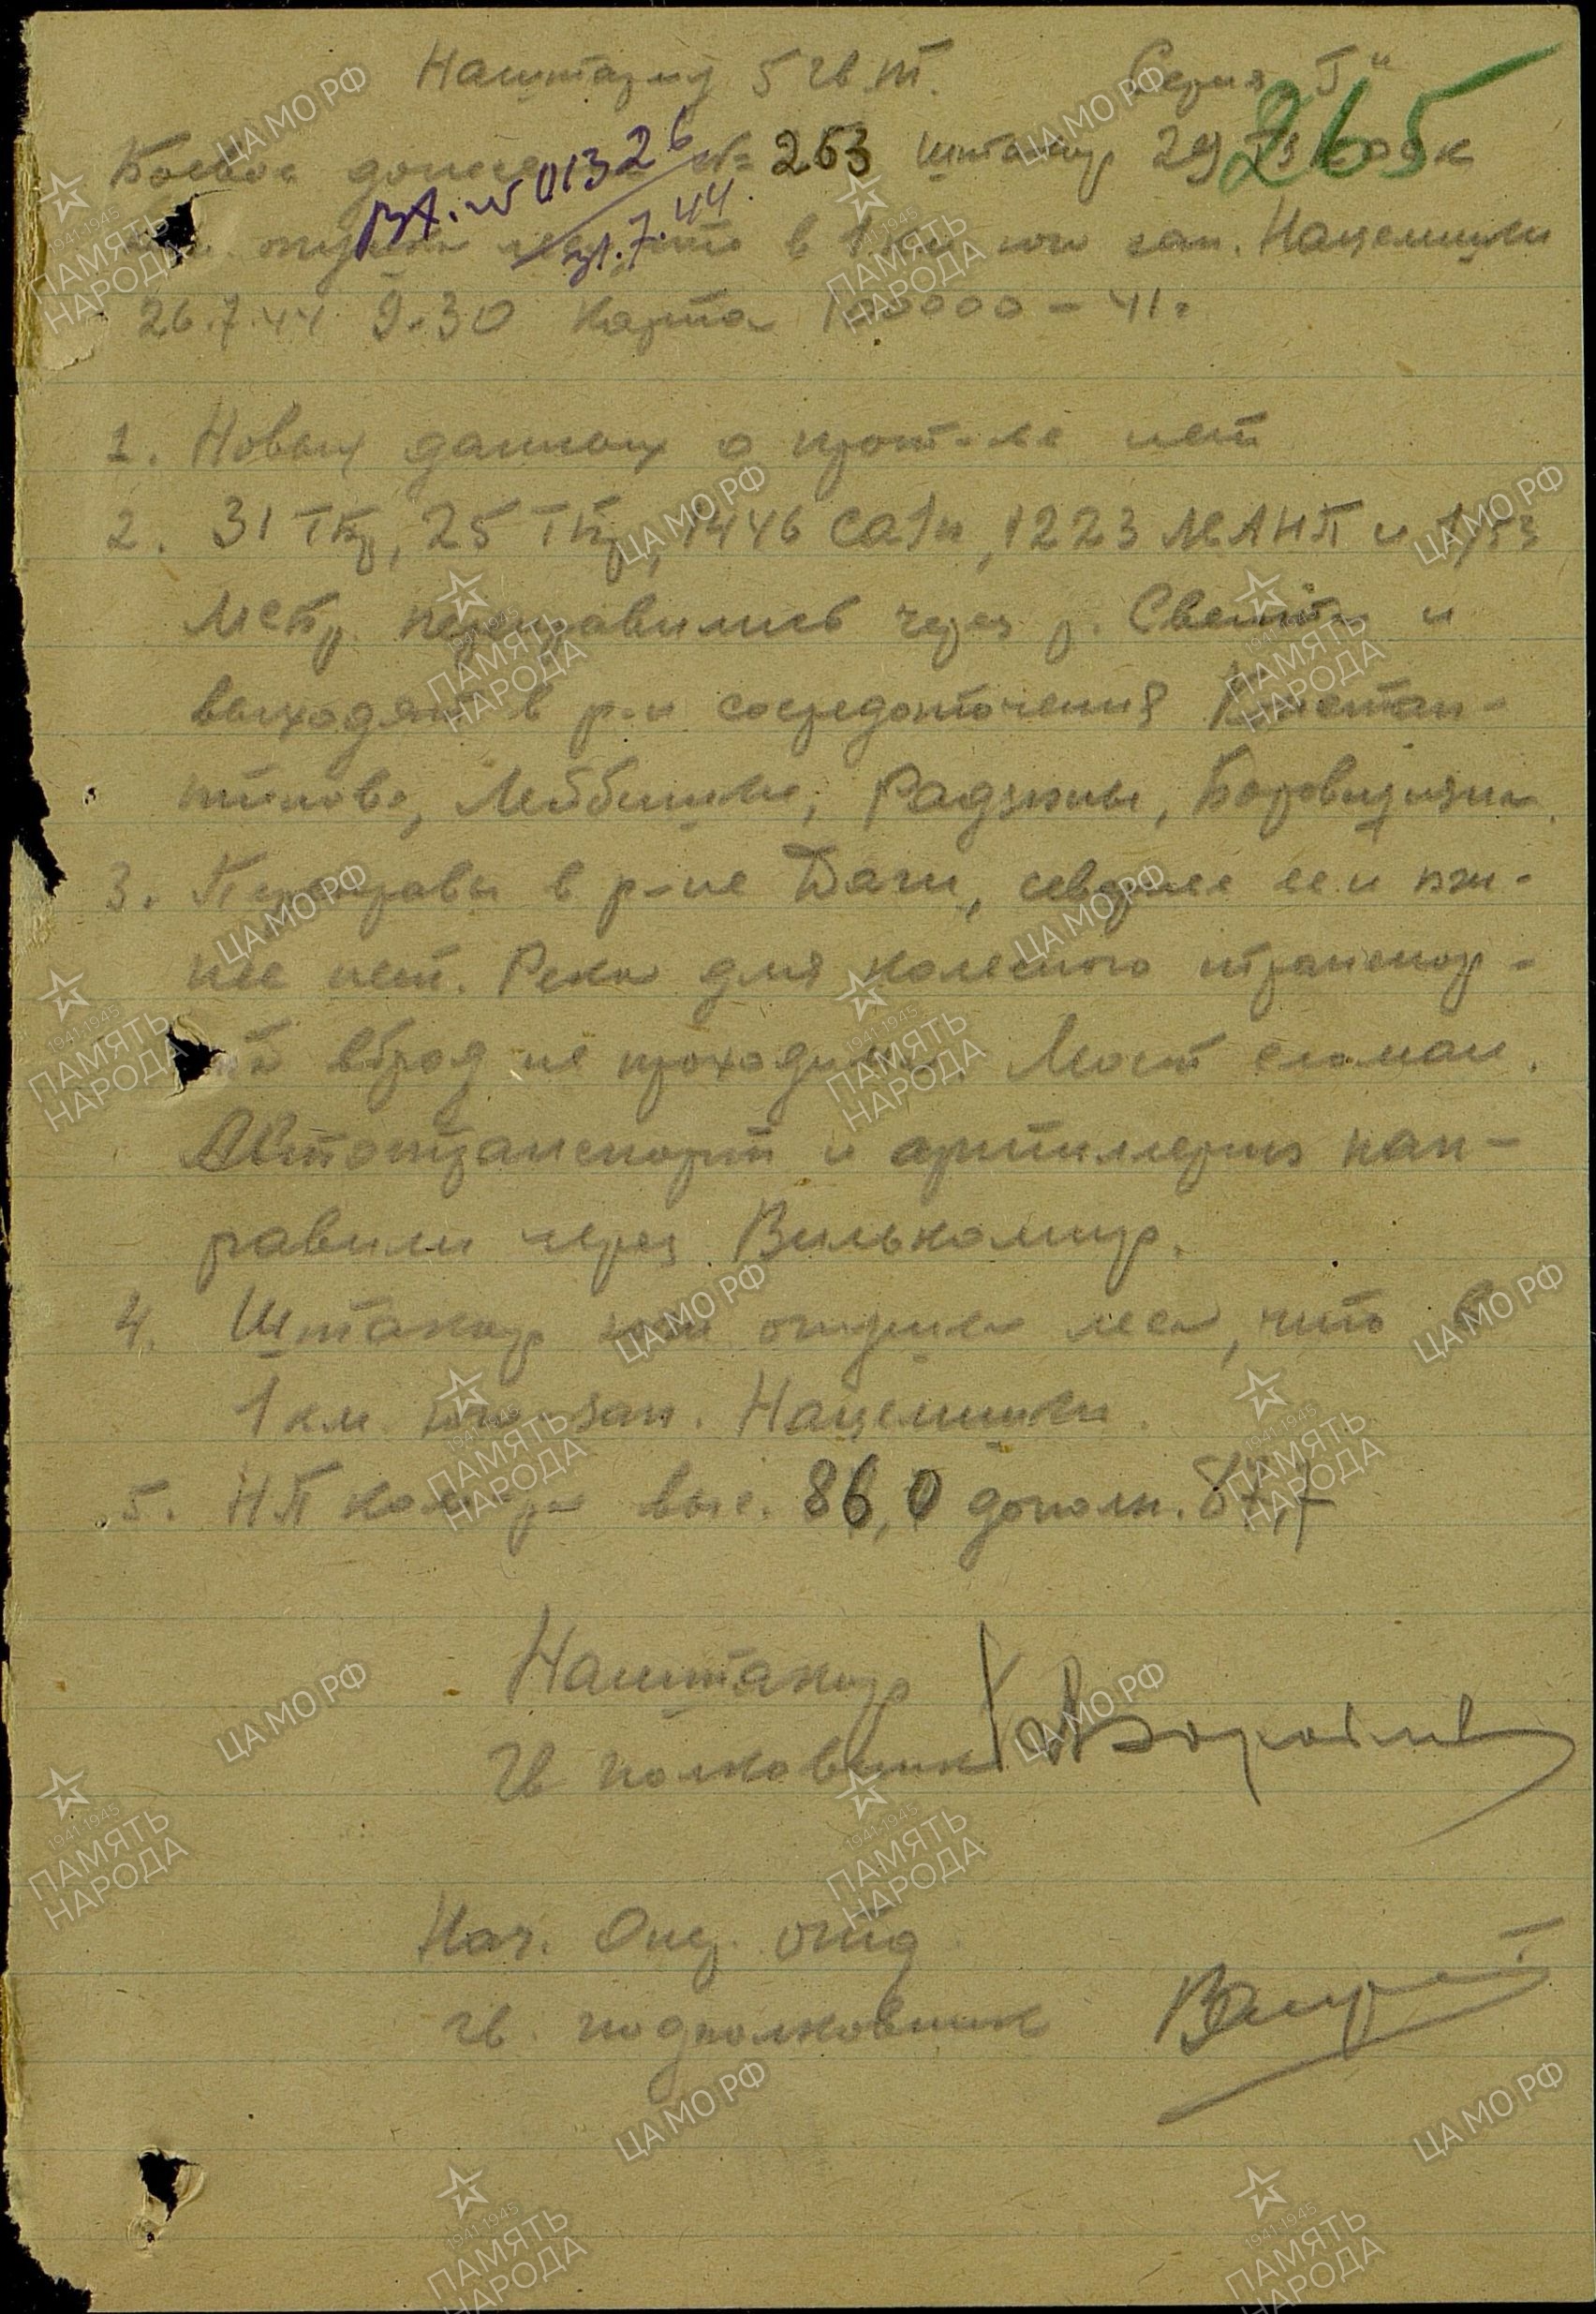 Наштарму 5 гв. т. Серия "Г"
265
Боевое донес № 253 Штакор 29
Вх. № 01326
7.44
опушка в 1 км юго зап. Нацелишки
26.7.44 9.30 Карта 100000 – 41 г
1. Новых данных о прот-ке нет
2. 31 ТБр, 25 ТБр, 1446 САП, 1223 ЛЕАНП и 1/53
Мсбр. переправились через р. Свента и
выходят в р-н сосредоточения Констан-
тиново, Лейбишки, Радзюны,
3. Переправы в р-не Даги, севернее ее и юж-
нее нет. Река для колесного транспор-
та вброд не проходима. Мост сломан.
Автотранспорт и артиллерию нап-
равили через Вилькомир.
4. Штакор опушка леса, что в
1 км юго-зап. Нацелишки.
5. НП ком-ра выс. 86,0 дополн. 87,7
Наштакор
Гв полковник
Нач. Опер. отд
гв. подполковник
ЦА МО РФ
1941-1945
ПАМЯТЬ
НАРОДА